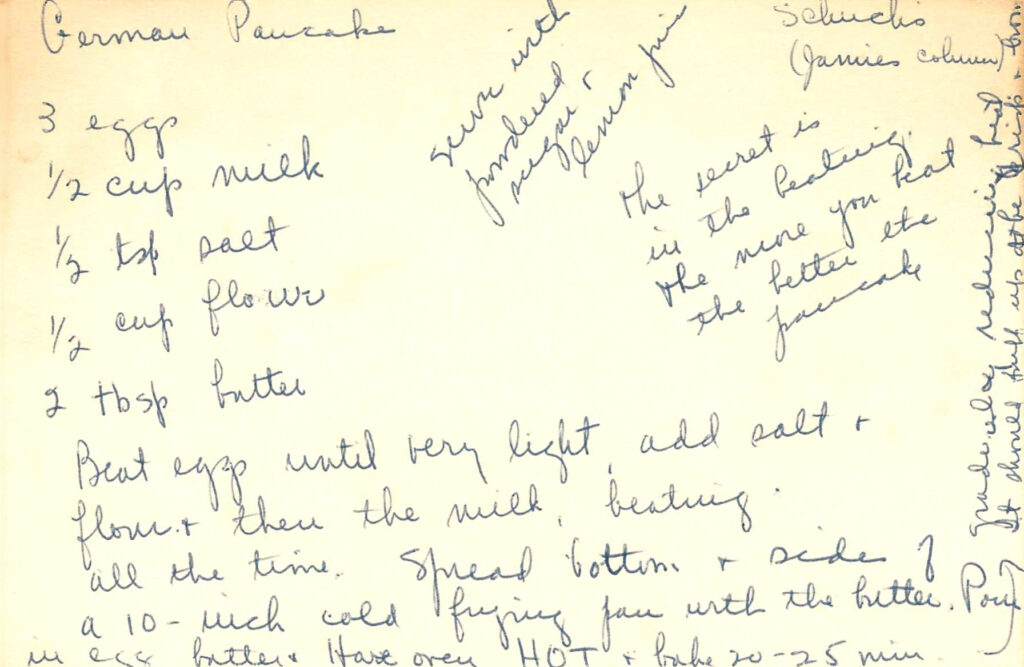 German Pancake
Schuchs
(Jamies column)
3 eggs
1/2 cup milk
1/2 tsp salt
1/2 cup flour
2 tbsp butter
serve with
powdered
sugar +
lemon juice
The secret is
in the beating.
The more you beat
the better the
pancake
Beat eggs until very light, add salt +
flour + then the milk, beating
all the time. Spread bottom + sides of
a 10-inch cold frying pan with the butter. Pour
in egg batter + Have oven HOT + bake 20-25 min
gradually reducing heat
It should puff up at the sides +